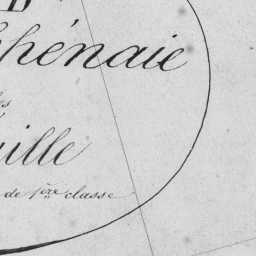 D
hénaie
es
ille
de 1ère classe